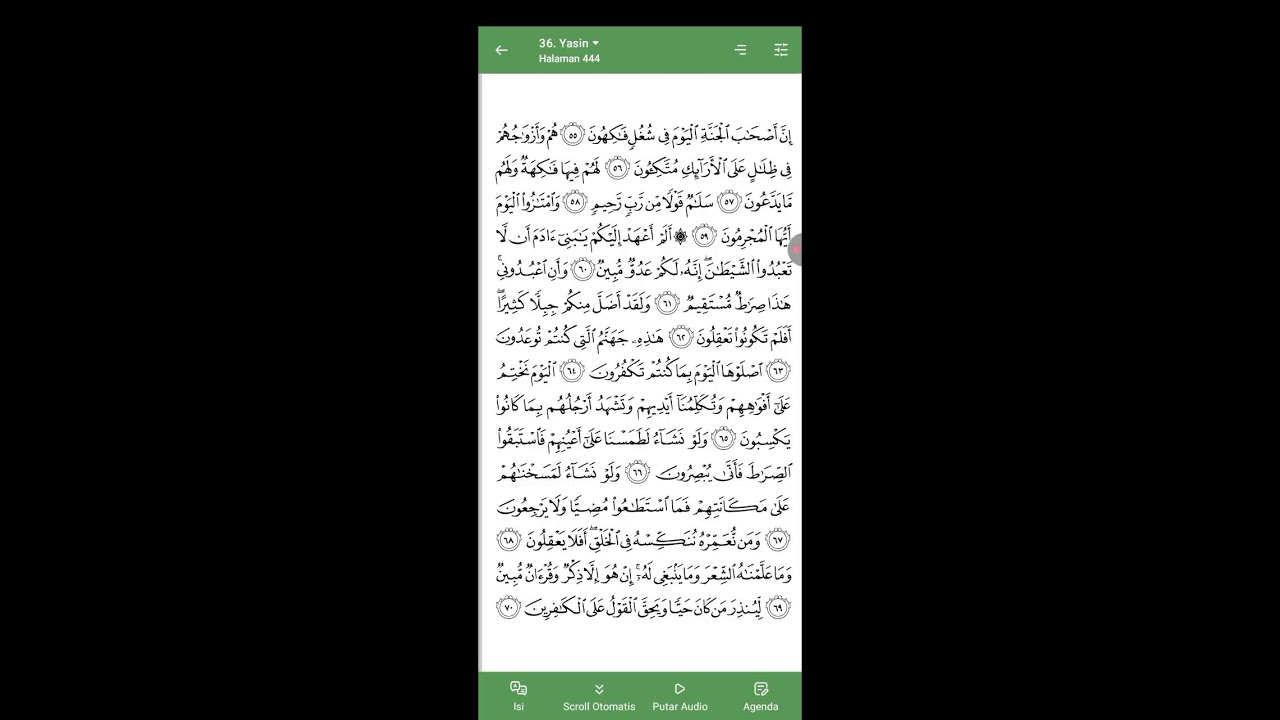 36. Yasin
Halaman 444
إِنَّ أَصْحَٰبَ ٱلْجَنَّةِ ٱلْيَوْمَ فِى شُغُلٍ فَٰكِهُونَ ٥٥ هُمْ وَأَزْوَٰجُهُمْ
فِى ظِلَٰلٍ عَلَى ٱلْأَرَآئِكِ مُتَّكِـُٔونَ ٥٦ لَهُمْ فِيهَا فَٰكِهَةٌ وَلَهُم
مَّا يَدَّعُونَ ٥٧ سَلَٰمٌ قَوْلًا مِّن رَّبٍّ رَّحِيمٍ ٥٨ وَٱمْتَٰزُوا۟ ٱلْيَوْمَ
أَيُّهَا ٱلْمُجْرِمُونَ ٥٩ ۞ أَلَمْ أَعْهَدْ إِلَيْكُمْ يَٰبَنِىٓ ءَادَمَ أَن لَّا
تَعْبُدُوا۟ ٱلشَّيْطَٰنَ ۖ إِنَّهُۥ لَكُمْ عَدُوٌّ مُّبِينٌ ٦٠ وَأَنِ ٱعْبُدُونِى ۚ
هَٰذَا صِرَٰطٌ مُّسْتَقِيمٌ ٦١ وَلَقَدْ أَضَلَّ مِنكُمْ جِبِلًّا كَثِيرًا ۖ
أَفَلَمْ تَكُونُوا۟ تَعْقِلُونَ ٦٢ هَٰذِهِۦ جَهَنَّمُ ٱلَّتِى كُنتُمْ تُوعَدُونَ
٦٣ ٱصْلَوْهَا ٱلْيَوْمَ بِمَا كُنتُمْ تَكْفُرُونَ ٦٤ ٱلْيَوْمَ نَخْتِمُ
عَلَىٰٓ أَفْوَٰهِهِمْ وَتُكَلِّمُنَآ أَيْدِيهِمْ وَتَشْهَدُ أَرْجُلُهُم بِمَا كَانُوا۟
يَكْسِبُونَ ٦٥ وَلَوْ نَشَآءُ لَطَمَسْنَا عَلَىٰٓ أَعْيُنِهِمْ فَٱسْتَبَقُوا۟
ٱلصِّرَٰطَ فَأَنَّىٰ يُبْصِرُونَ ٦٦ وَلَوْ نَشَآءُ لَمَسَخْنَٰهُمْ
عَلَىٰ مَكَانَتِهِمْ فَمَا ٱسْتَطَٰعُوا۟ مُضِيًّا وَلَا يَرْجِعُونَ
٦٧ وَمَن نُّعَمِّرْهُ نُنَكِّسْهُ فِى ٱلْخَلْقِ ۖ أَفَلَا يَعْقِلُونَ ٦٨
وَمَا عَلَّمْنَٰهُ ٱلشِّعْرَ وَمَا يَنۢبَغِى لَهُۥٓ ۚ إِنْ هُوَ إِلَّا ذِكْرٌ وَقُرْءَانٌ مُّبِينٌ
٦٩ لِّيُنذِرَ مَن كَانَ حَيًّا وَيَحِقَّ ٱلْقَوْلُ عَلَى ٱلْكَٰفِرِينَ ٧٠
Isi
Scroll Otomatis
Putar Audio
Agenda